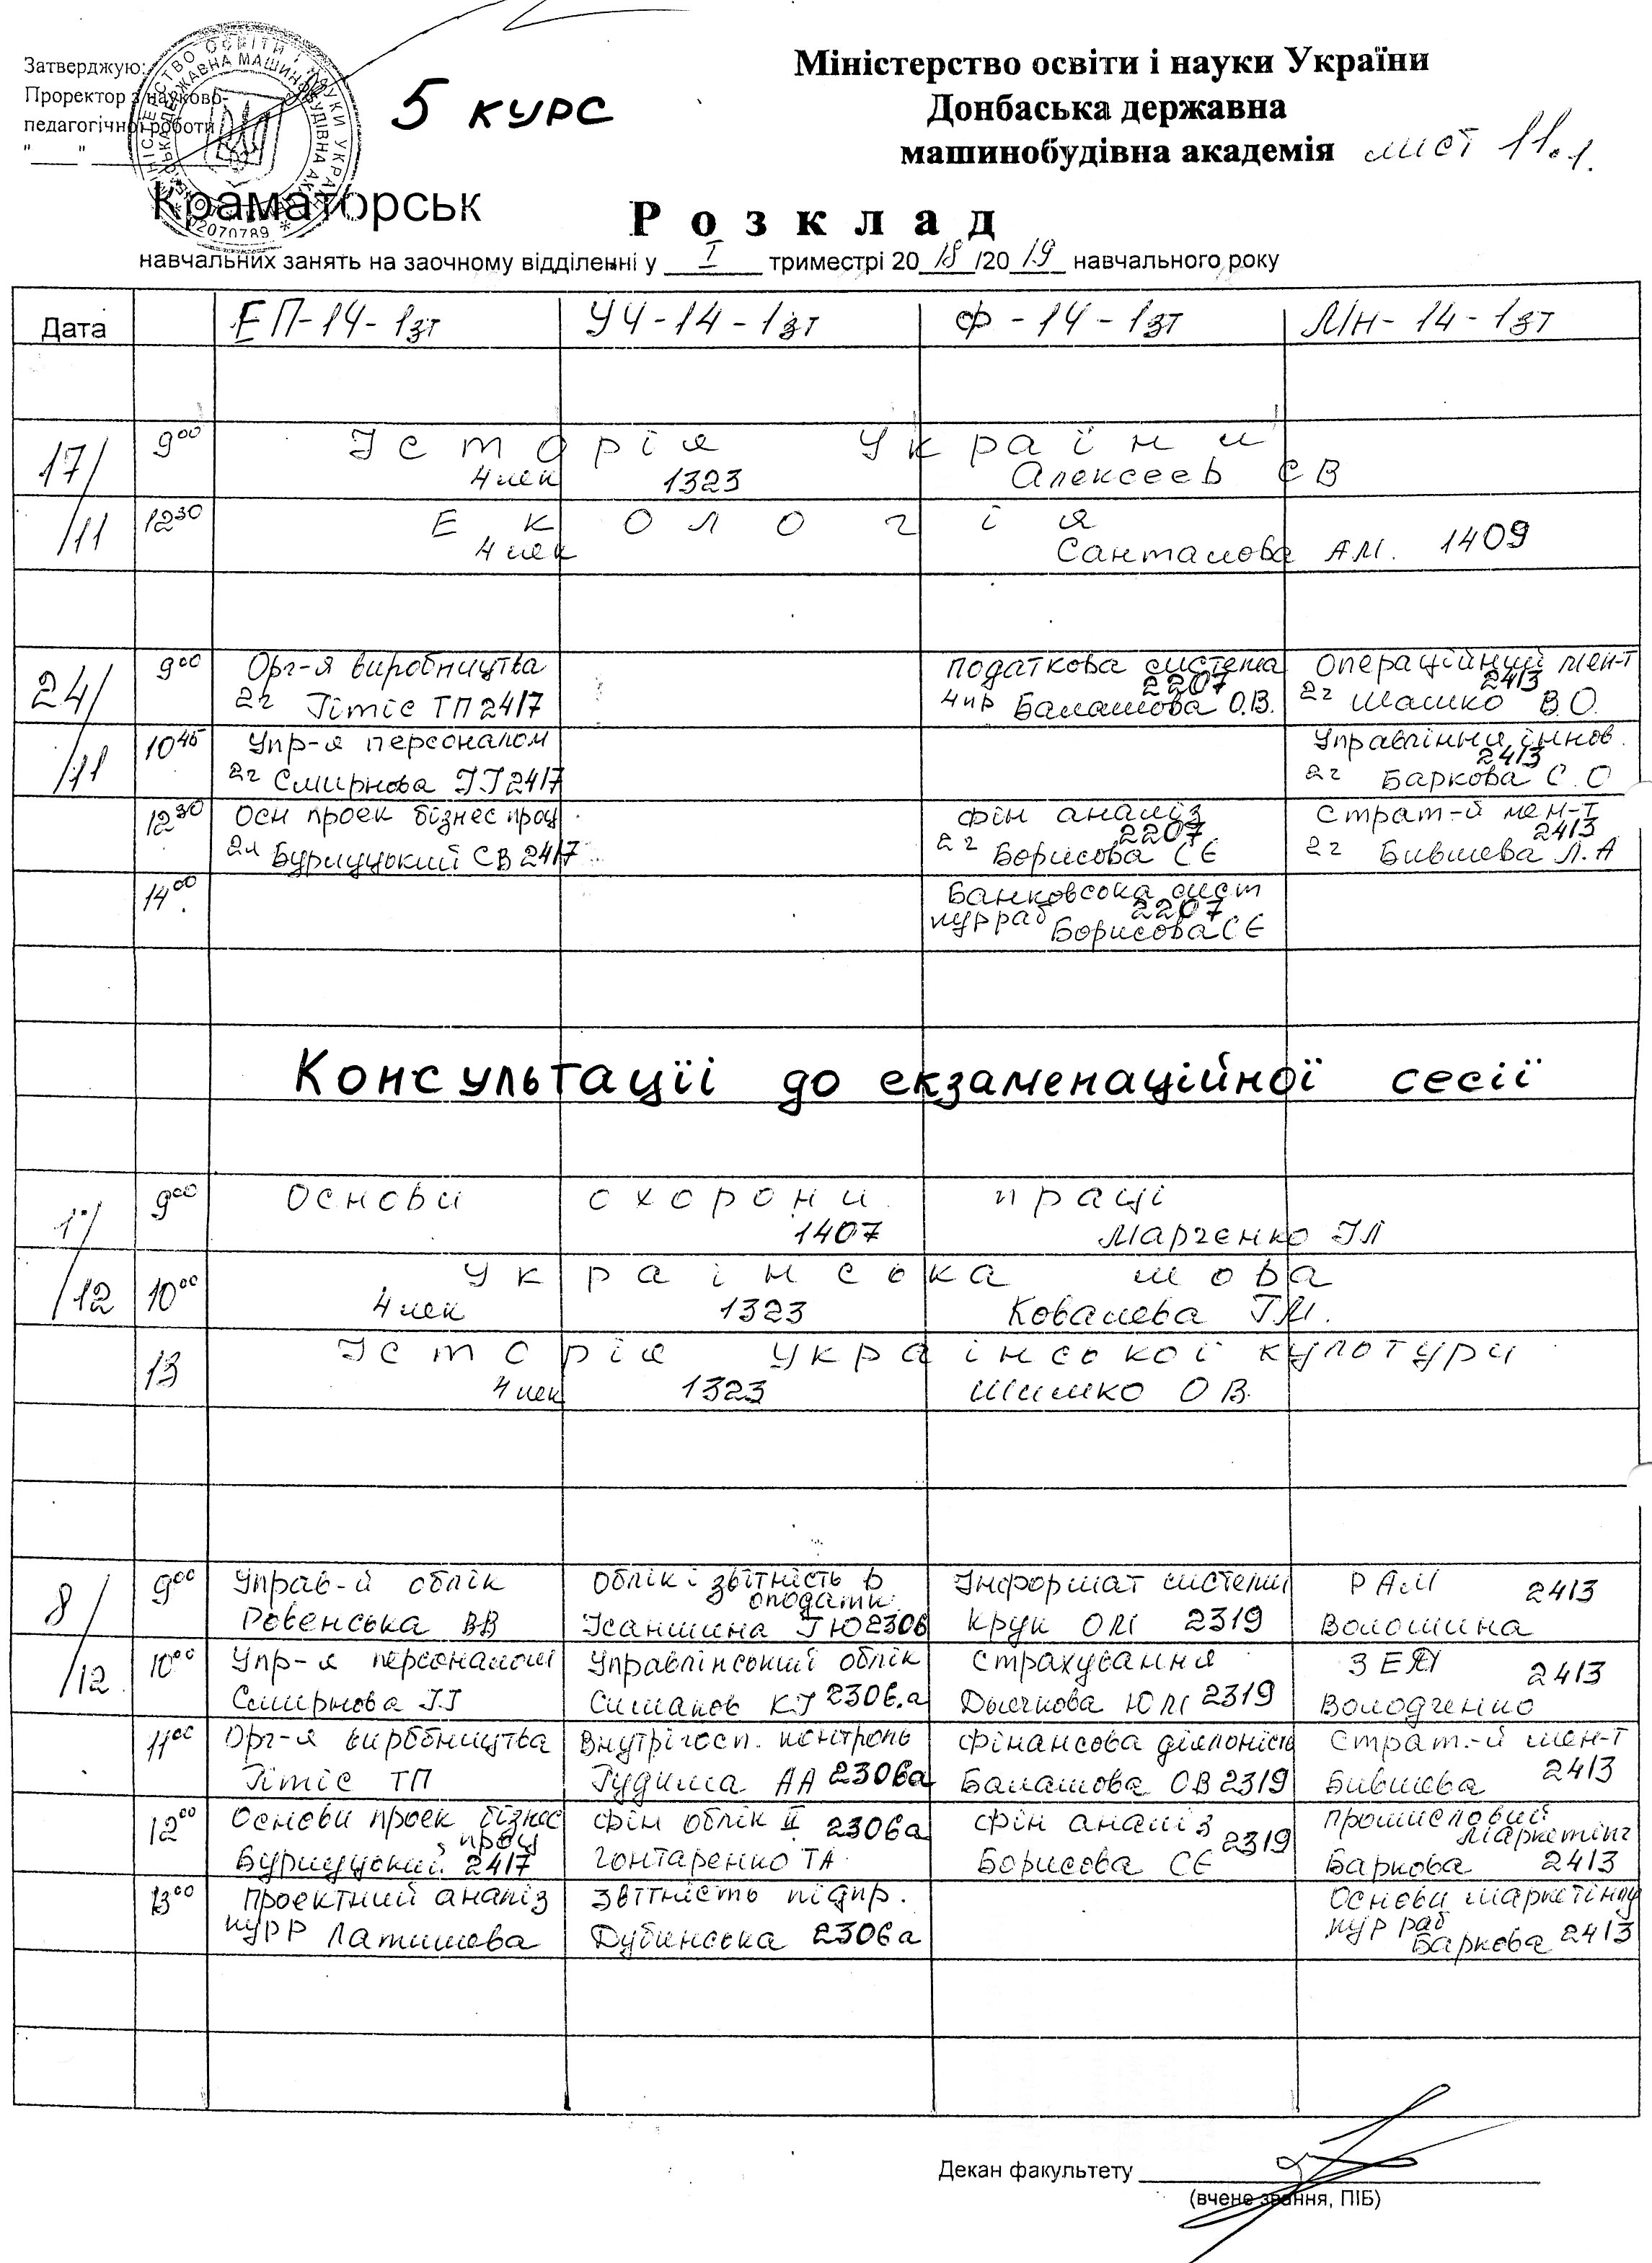 Затверджую:
Проректор з науково-
педагогічної роботи
"____" ____________
5 курс
Міністерство освіти і науки України
Донбаська державна
машинобудівна академія лист 11.1.
Краматорськ
Розклад
навчальних занять на заочному відділенні у I триместрі 2018/2019 навчального року
Дата ЕП-14-1зт УЧ-14-1зт Ф-14-1зт МН-14-1зт
17/11 9⁰⁰ Історія України
4 лек 1323 Алексеев СВ
12³⁰ Екологія
4 лек Санталова А.М. 1409
24/11 9⁰⁰ Орг-я виробництва
2г Гітіс ТП 2417
податкова система
2207
4пр Балашова О.В.
Операційний мен-т
2413
2г Шашко В.О.
10⁴⁵ Упр-я персоналом
2г Смирнова І.І 2417
Управління іннов.
2413
2г Баркова С.О
12³⁰ Осн проек бізнес проц.
2л Бурлуцький СВ 2417
фін аналіз
2207
2г Борисова СЄ
Страт-й мен-т
2413
2г Бившева Л.А
14⁰⁰ Банковська сист
2207
кур раб Борисова СЄ
Консультаціїі до екзаменаційної сесії
1/12 9⁰⁰ Основи охорони праці
1407 Марченко ІЛ
10⁰⁰ Українська мова
4 лек 1323 Ковалева Г.М.
13 Історія української культури
4 лек 1323 Шимко О В.
8/12 9⁰⁰ Управ-й облік
Ровенська ВВ
Облік і звітність в
оподатк.
Ісаншина ГЮ 2306
Інформат системи
Крук ОМ 2319
РАМ 2413
Волошина
10⁰⁰ Упр-я персоналом
Смирнова І.І
Управлінський облік
Симаков КІ 2306.а
Страхування
Дьячкова ЮМ 2319
ЗЕД 2413
Володченко
11⁰⁰ Орг-я виробництва
Гітіс ТП
Внутрігосп. контроль
Гудима АА 2306а
фінансова діяльність
Балашова ОВ 2319
Страт.-й мен-т
Бившева 2413
12⁰⁰ Основи проек бізнес
проц
Бурлуцький 2417
фін облік II 2306а
Гонтаренко ТА
фін аналіз
2319
Борисова СЄ
промисловий
маркетінг
Баркова 2413
13⁰⁰ Проектний аналіз
курр Латишева
Звітність підпр.
Дубинська 2306а
Основи маркетінгу
кур раб
Баркова 2413
Декан факультету
(вчене звання, ПІБ)